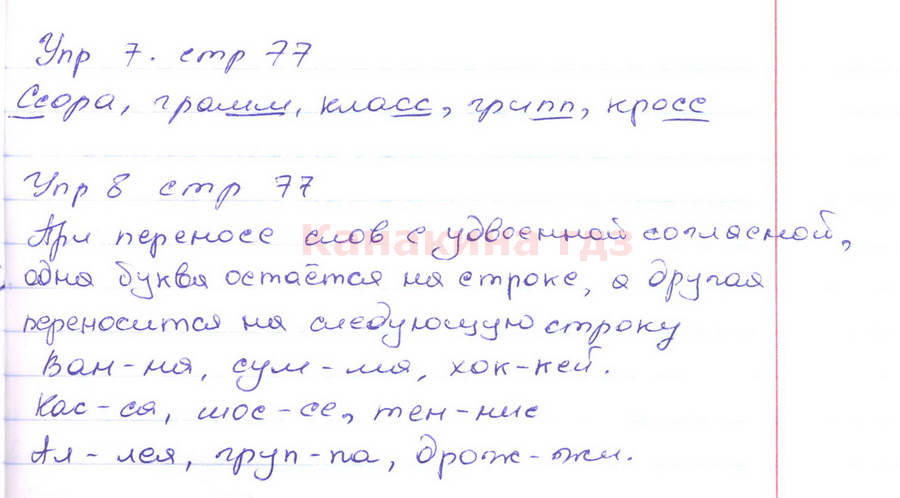 Упр 7. стр 77
Ссора, грамм, класс, грипп, кросс
Упр 8 стр 77
При переносе слов с удвоенной согласной,
одна буква остаётся на строке, а другая
переносится на следующую строку
Ван-на, сум-ма, хок-кей.
Кас-са, шос-се, тен-нис
Ал-лея, груп-па, дрож-жи.
Канакина гдз